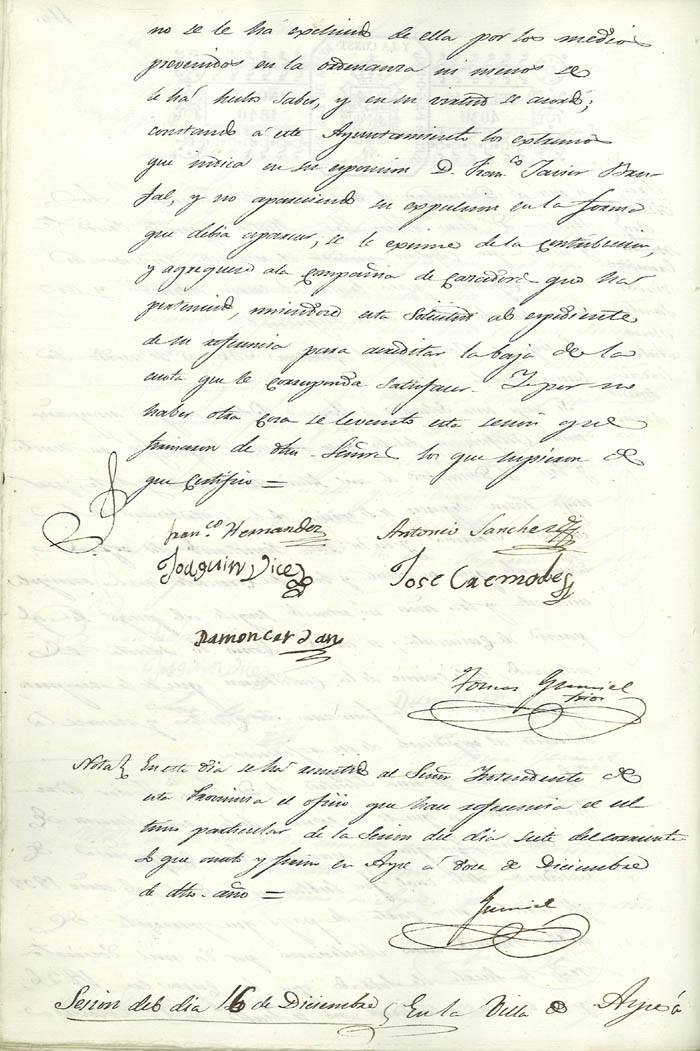 no se le há expelido de ella por los medios
prevenidos en la ordenanza ni menos se
le há hecho saber, y en su virtud se acordó;
constando á este Ayuntamiento los extremos
que indica en su exposicion D. Fran.co Javier
y no apareciendo su expulsion en la forma
que debia aparecer; se le exime de la contribucion,
y agreguese ala Compañia de Cazadores que há
pertenecido, uniendose esta Solicitud al espediente
de su referencia para acreditar la baja de la
cuota que le corresponda satisfacer. Y por no
haber otra cosa se levantó esta sesion que
firmaron de dhos. Señores los que supieron de
que certifico =
Fran.co Hernandez
Antonio Sanchez
Joaquin Vicez
Jose Caemodes
Ramon Cardan
Tomas Gumiel
Srio
Nota
En este dia se há remitido al Señor Intendente de
esta Provincia el oficio que hace referencia el ul
timo particular de la Sesion del dia siete del corriente
Lo que anoto y firmo en Aspe á doce de Diciembre
de dho. año =
Gumiel
Sesion del dia 16 de Diciembre
En la Villa de Aspe á